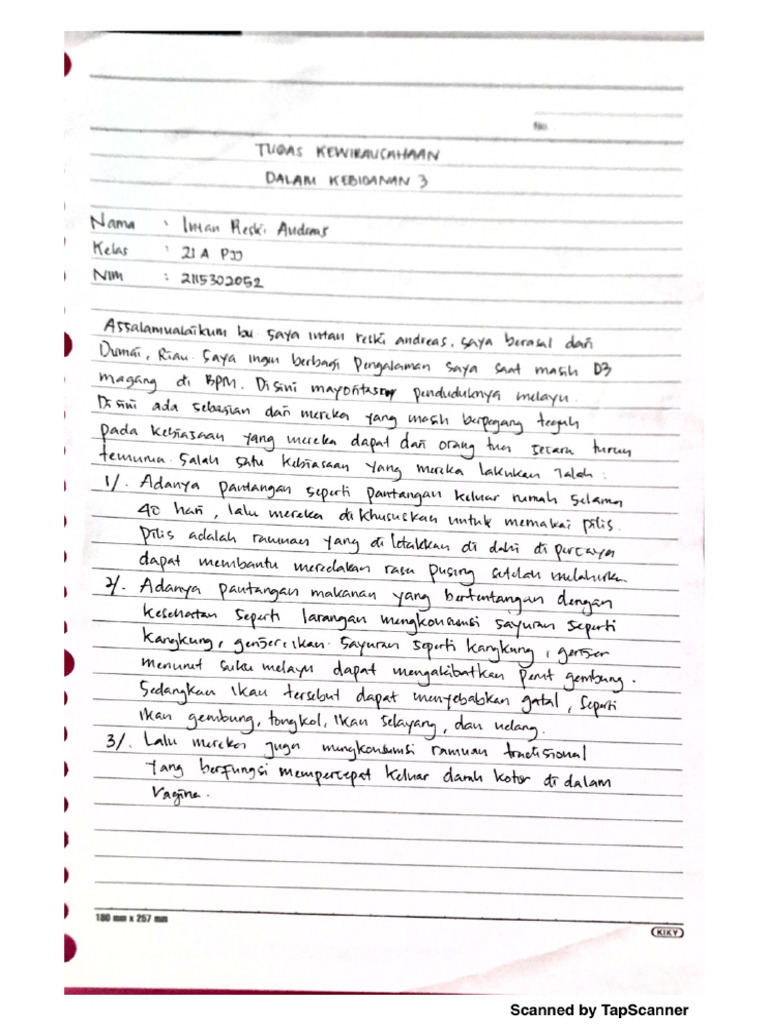 No.
TUGAS KEWIRAUSAHAAN
DALAM KEBIDANAN 3
Nama : Intan Reski Andreas
Kelas : 21 A PJJ
NIM : 2115302052
Assalamualaikum bu. Saya intan reski andreas, saya berasal dari
Dumai, Riau. Saya ingin berbagi Pengalaman saya saat masih D3
magang di BPM. Disini mayoritasny penduduknya melayu.
Disini ada sebagian dari mereka yang masih berpegang teguh
pada kebiasaan yang mereka dapat dari orang tua secara turun
temurun. Salah satu kebiasaan yang mereka lakukan ialah :
1/. Adanya pantangan seperti pantangan keluar rumah selama
40 hari, lalu mereka di khususkan untuk memakai pilis.
Pilis adalah ramuan yang di letakkan di dahi di percaya
dapat membantu meredakan rasa pusing setelah melahirkan
2/. Adanya pantangan makanan yang bertentangan dengan
kesehatan seperti larangan mengkonsumsi sayuran seperti
kangkung, genjer, ikan. Sayuran seperti kangkung, genjer
menurut suku melayu dapat mengakibatkan perut gembung.
Sedangkan ikan tersebut dapat menyebabkan gatal, seperti
ikan gembung, tongkol, ikan selayang, dan udang.
3/. Lalu mereka juga mengkonsumsi ramuan tradisional
yang berfungsi mempercepat keluar darah kotor di dalam
vagina.
180 mm x 257 mm
KIKY
Scanned by TapScanner